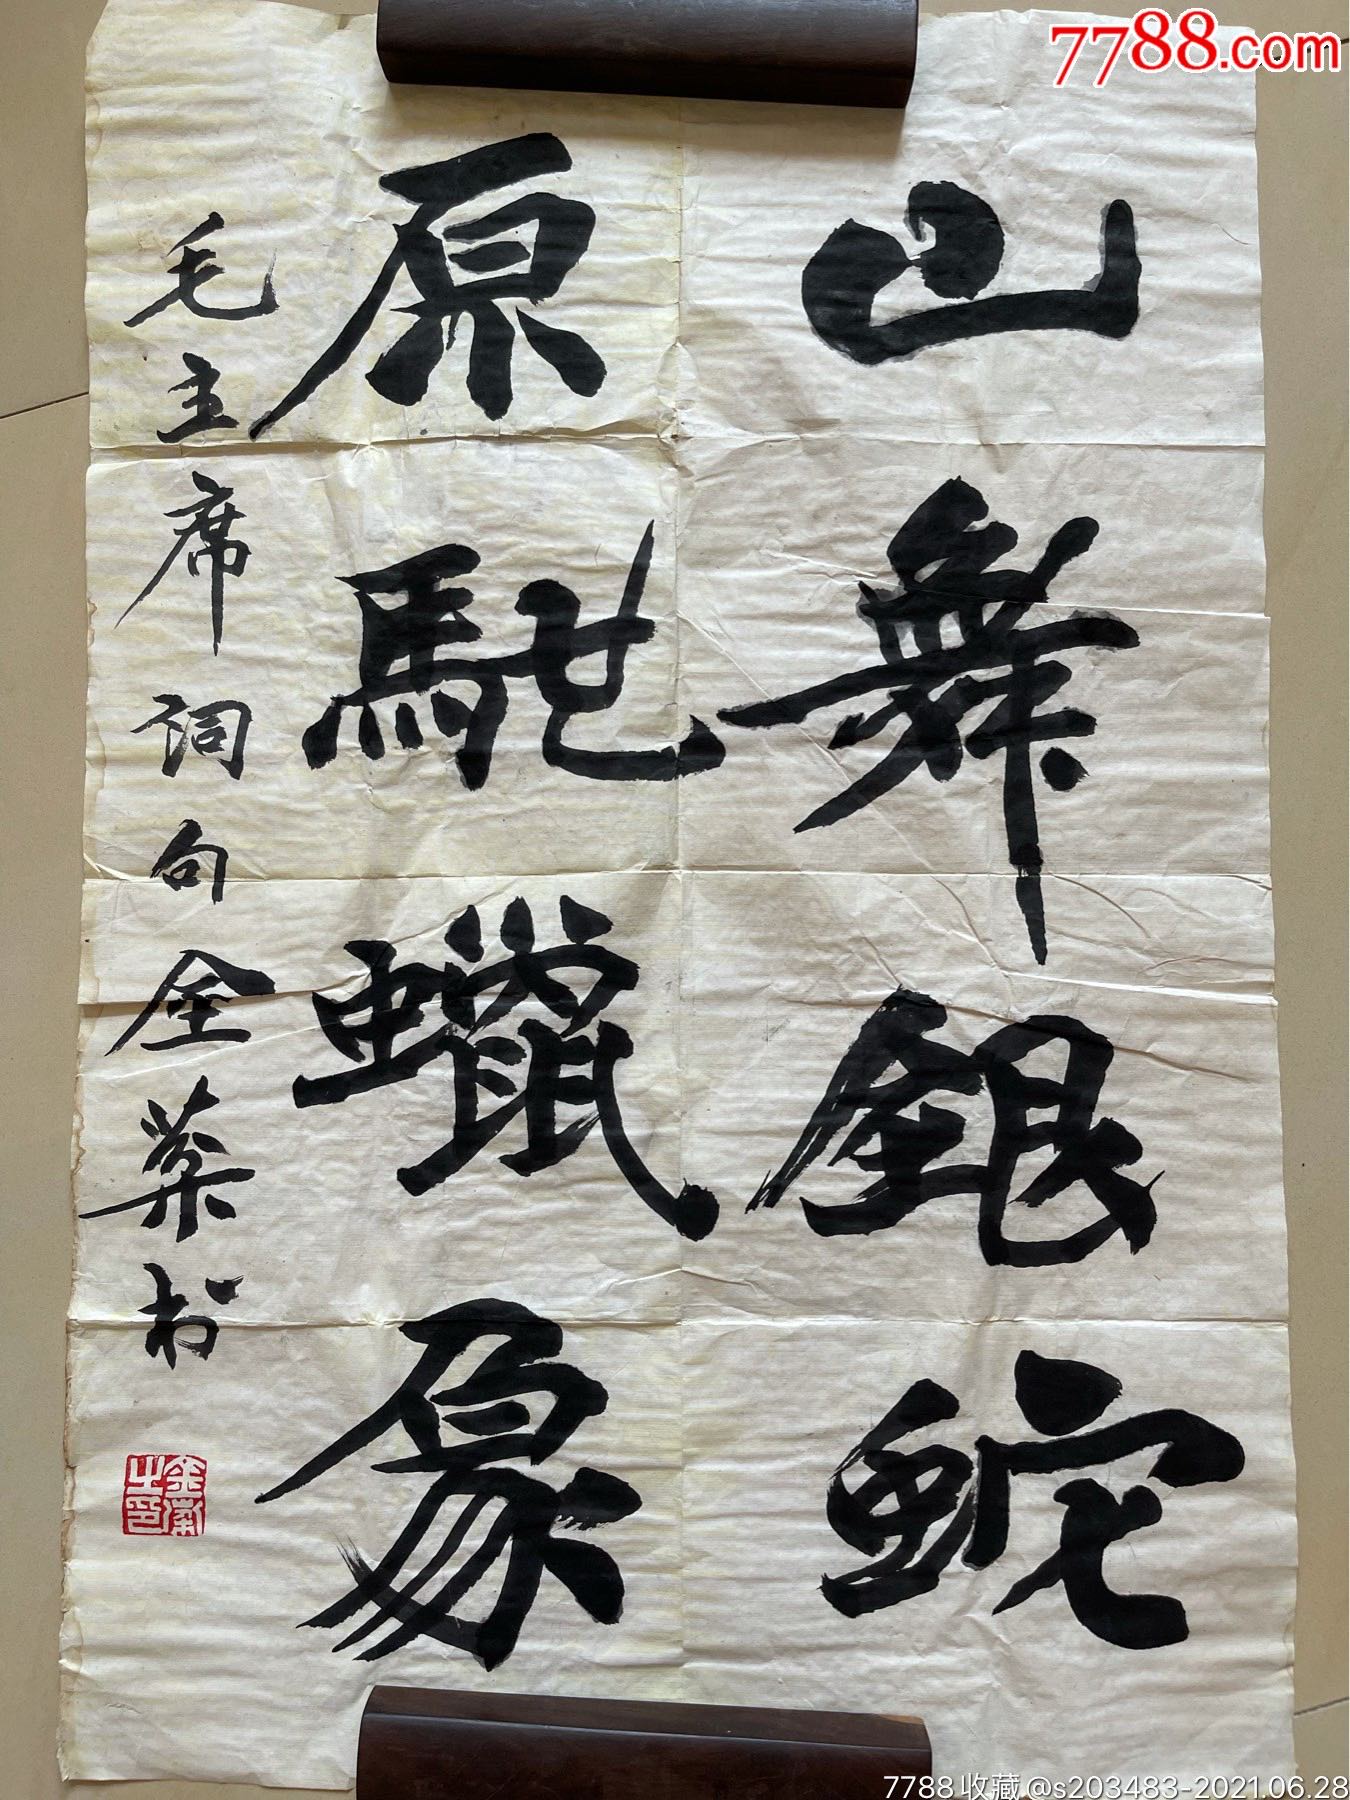 7788.com
山舞銀蛇
原馳蠟象
毛主席词句金书
金之印
7788收藏@s203483-2021.06.28